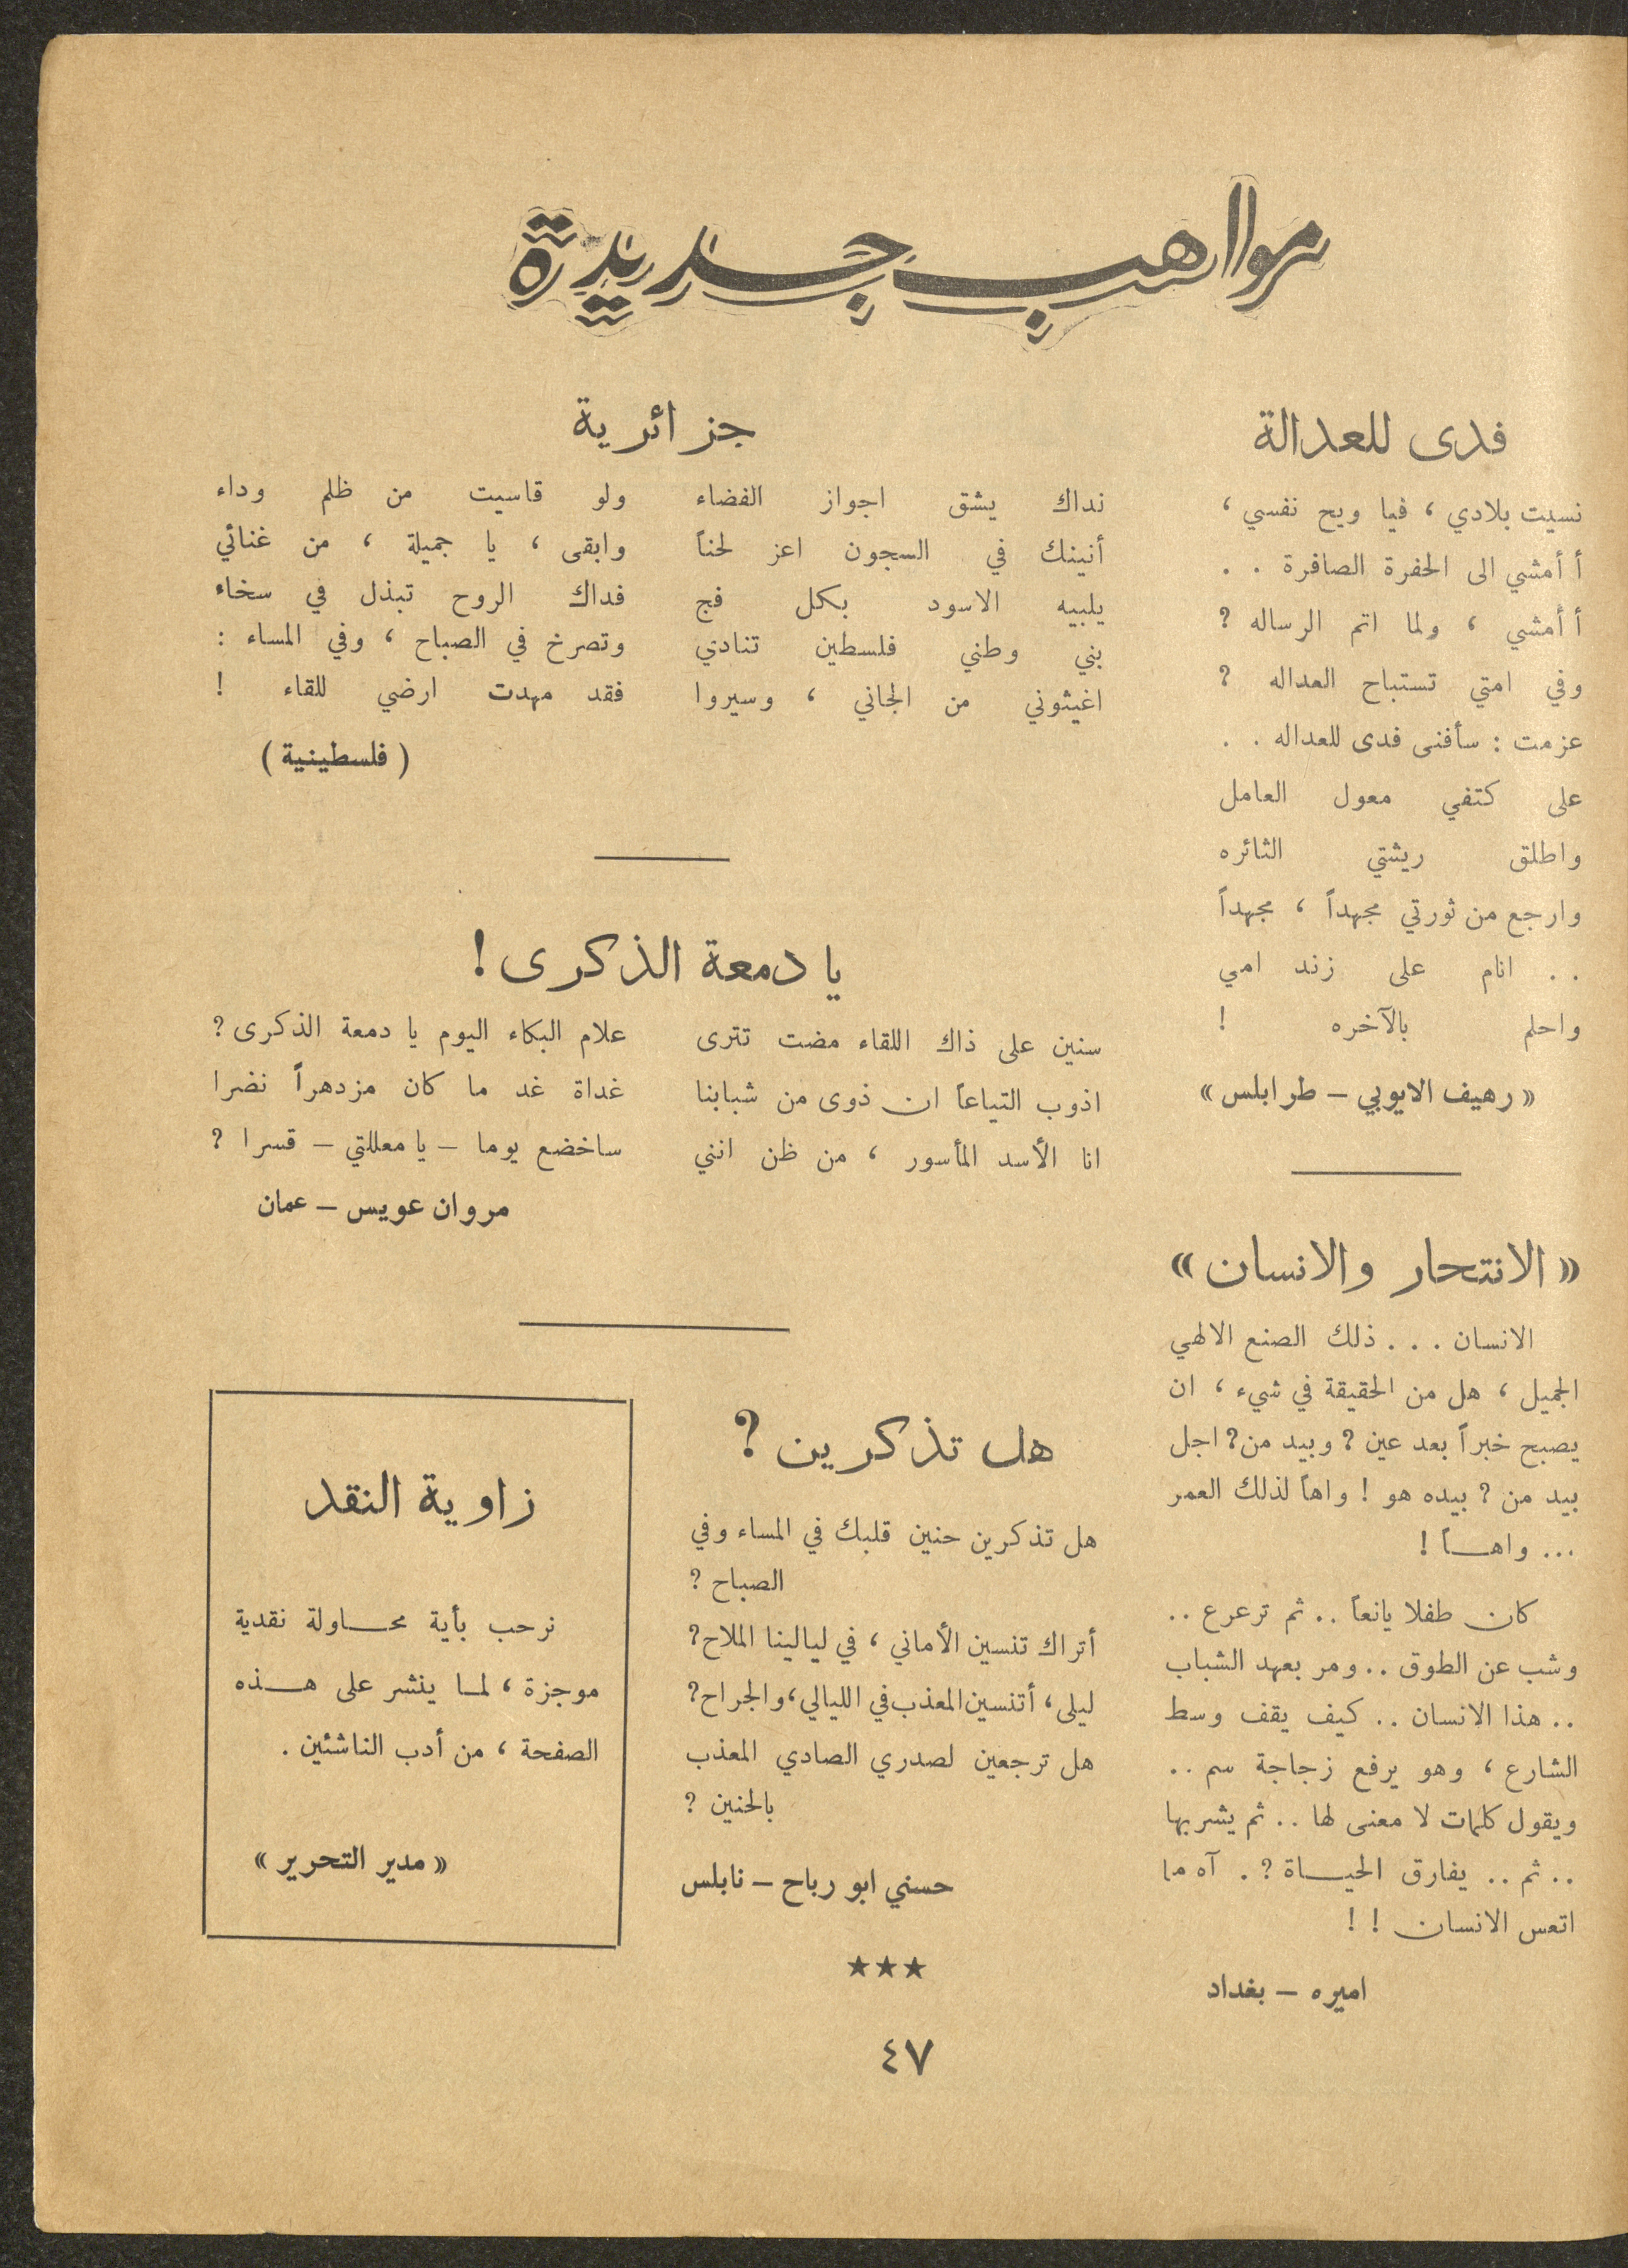 مواهب جديدة
فدى للعدالة
نسيت بلادي ، فيا ويح نفسي ،
أ أمشي الى الحفرة الصافرة . .
أ أمشي ، ولما اتم الرساله ?
وفي امتي تستباح العداله ?
عزمت : سأفنى فدى للعداله . .
على كتفي معول العامل
واطلق ريشتي الثائره
وارجع من ثورتي مجهداً ، مجهداً
. . انام على زند امي
واحلم بالآخره !
« رهيف الايوبي – طرابلس »
« الانتحار والانسان »
الانسان . . . ذلك الصنع الالهي
الجميل ، هل من الحقيقة في شيء ، ان
يصبح خبراً بعد عين ? وبيد من ? اجل
بيد من ? بيده هو ! واهاً لذلك العمر
... واهـــاً !
كان طفلا يانعاً .. ثم ترعرع ..
وشب عن الطوق .. ومر بعهد الشباب
.. هذا الانسان .. كيف يقف وسط
الشارع ، وهو يرفع زجاجة سم ..
ويقول كلمات لا معنى لها .. ثم يشربها
.. ثم .. يفارق الحيـــاة ? . آه ما
اتعس الانسان ! !
اميره – بغداد
جزائرية
نداك يشق اجواز الفضاء ولو قاسيت من ظلم وداء
أنينك في السجون اعز لحناً وابقى ، يا جميلة ، من غنائي
يلبيه الاسود بكل فج فداك الروح تبذل في سخاء
بني وطني فلسطين تنادي وتصرخ في الصباح ، وفي المساء :
اغيثوني من الجاني ، وسيروا فقد مهدت ارضي للقاء !
( فلسطينية )
يا دمعة الذكرى !
سنين على ذاك اللقاء مضت تترى علام البكاء اليوم يا دمعة الذكرى ?
اذوب التياعاً ان ذوى من شبابنا غداة غد ما كان مزدهراً نضرا
انا الأسد المأسور ، من ظن انني ساخضع يوما – يا معللتي – قسرا ?
مروان عويس – عمان
هل تذكرين ?
هل تذكرين حنين قلبك في المساء وفي
الصباح ?
أتراك تنسين الأماني ، في ليالينا الملاح?
ليلى ، أتنسين المعذب في الليالي ، والجراح?
هل ترجعين لصدري الصادي المعذب
بالحنين ?
حسني ابو رباح – نابلس
★★★
زاوية النقد
نرحب بأية محـــاولة نقدية
موجزة ، لمـا ينشر على هـــذه
الصفحة ، من أدب الناشئين .
« مدير التحرير »
٤٧